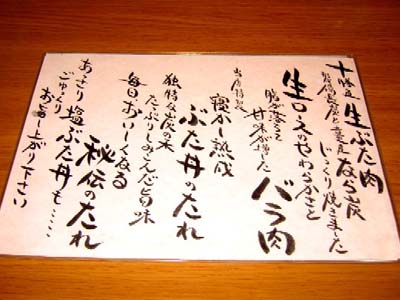 十勝産 生ぶた肉
なら炭
じっくり焼きました
生ロースのやわらかさと
脂が落ちて
甘味が増した
バラ肉
当店特製
寝かし熟成
ぶた丼のたれ
独特な炭の味
たっぷりしみこんだ旨味
毎日おいしくなる
秘伝のたれ
あさり塩ぶた丼も……
ごゆっくり
お召し上がり下さい